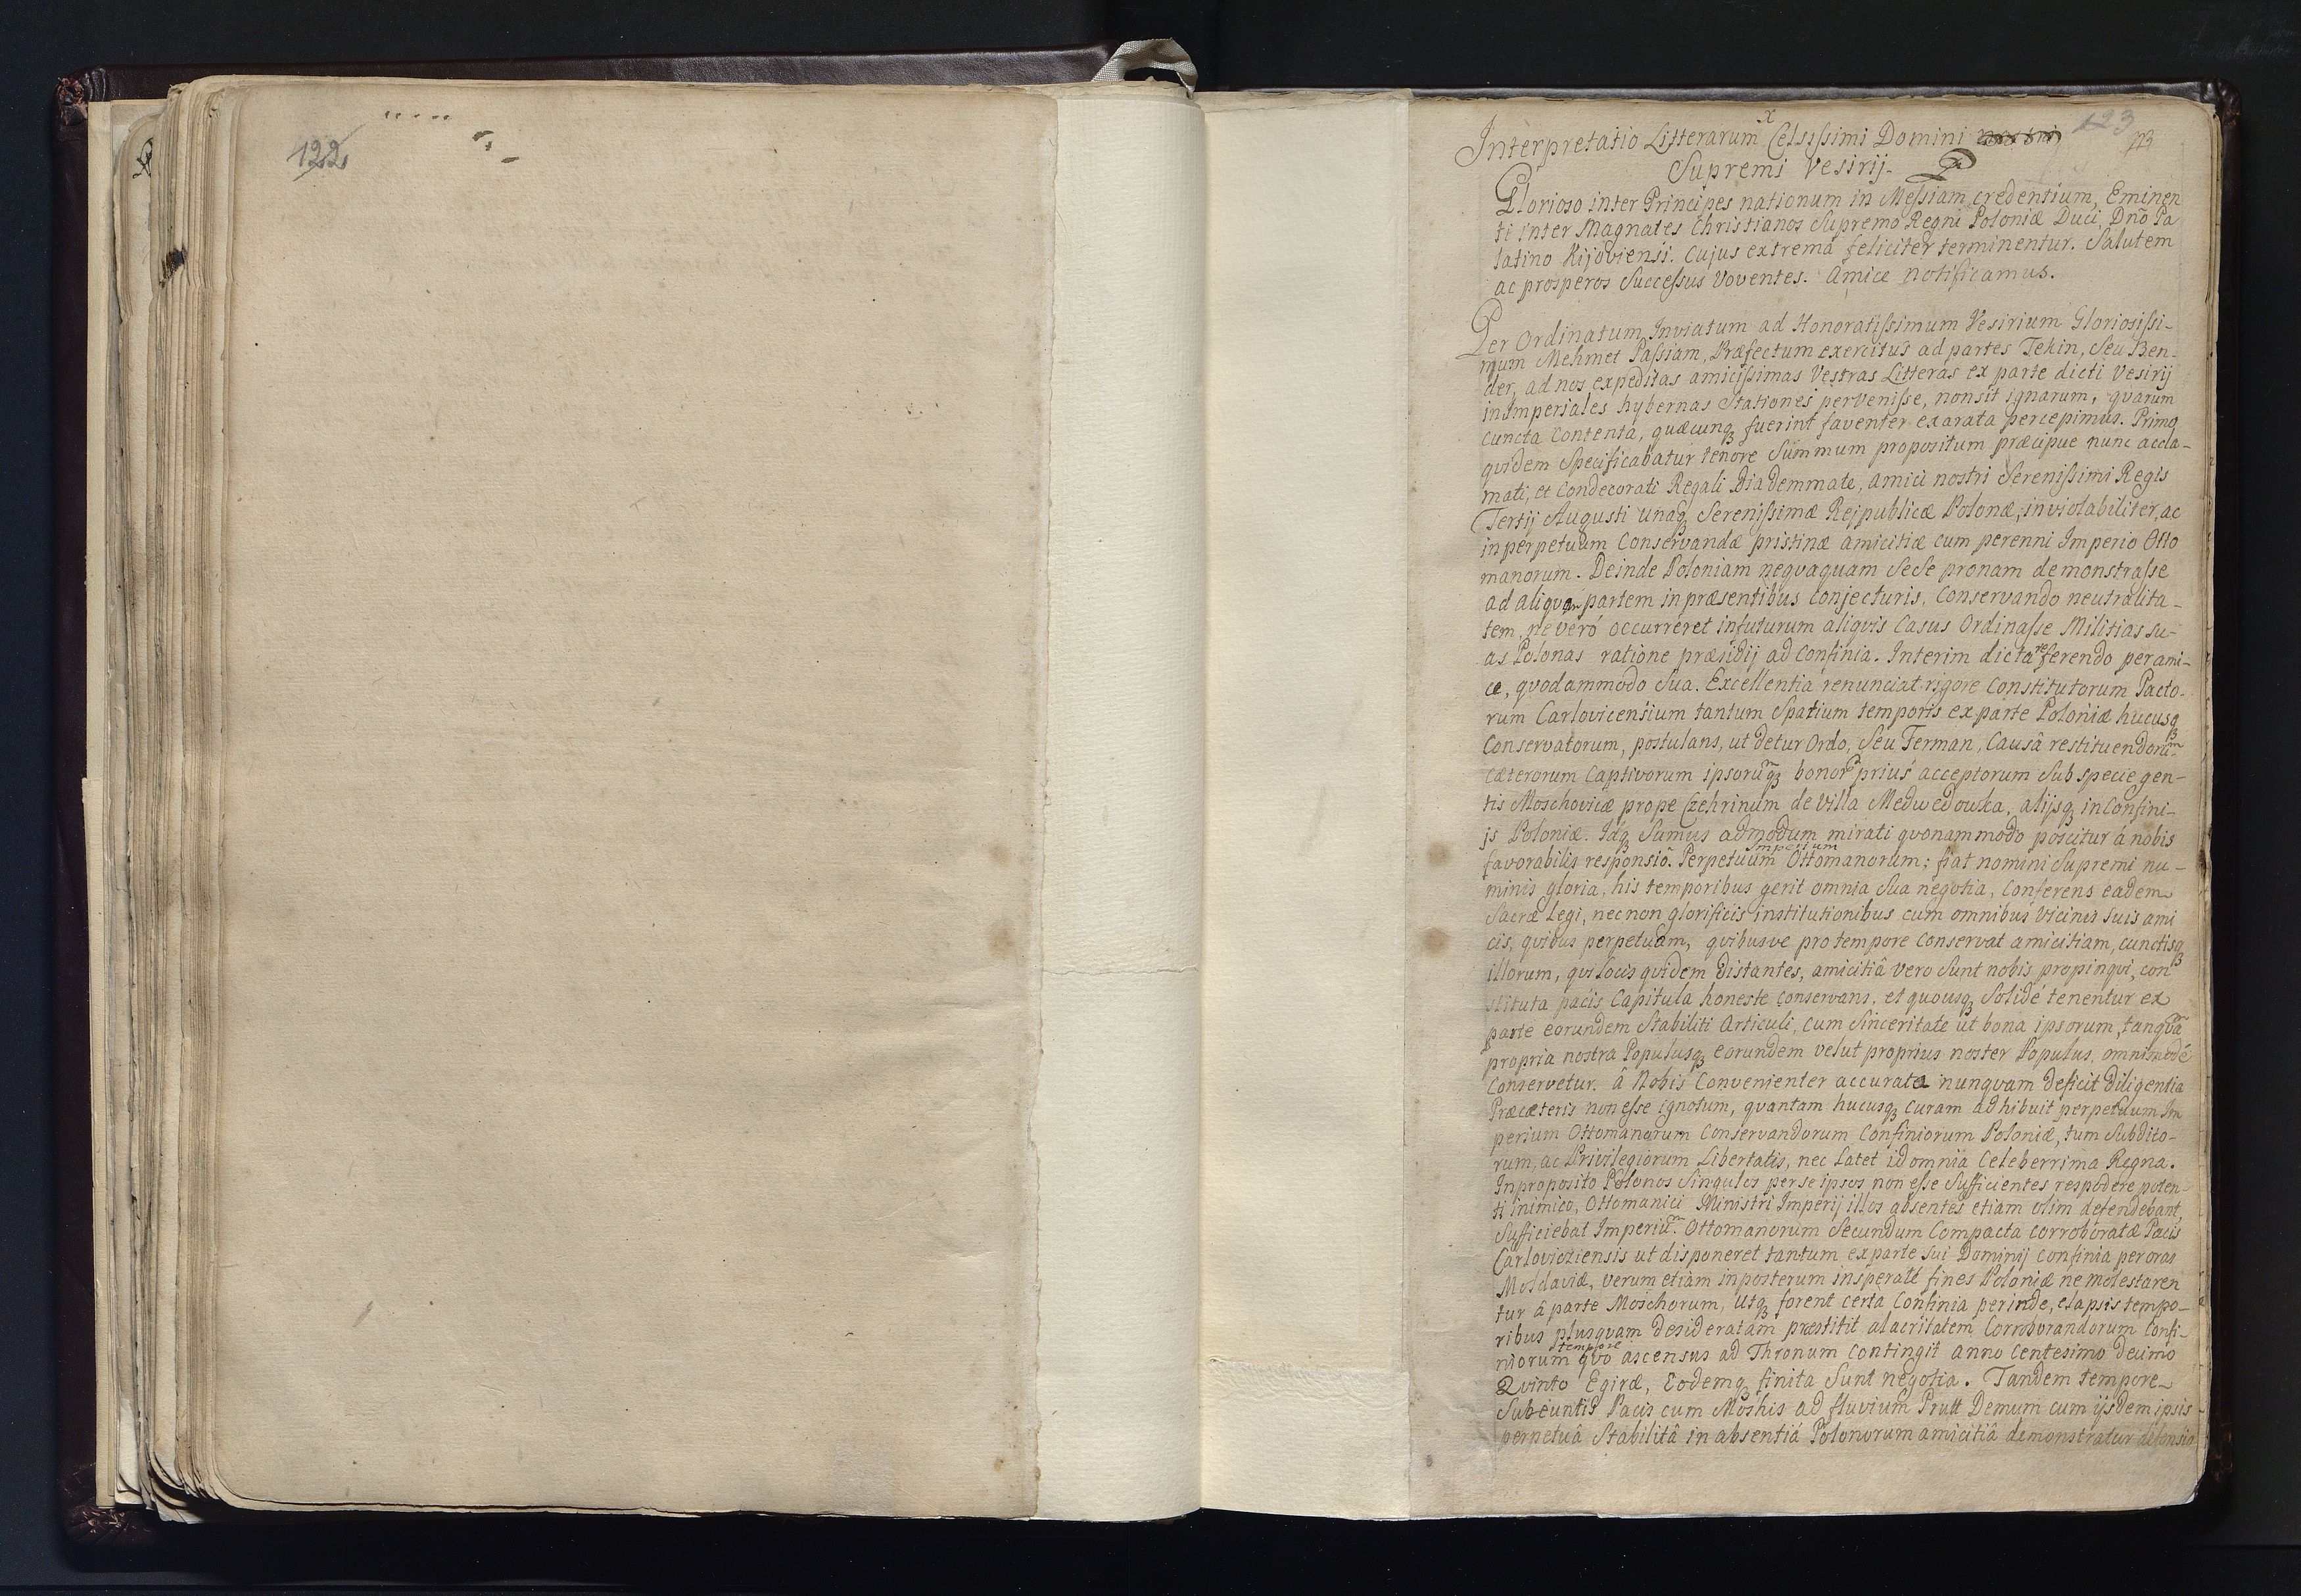 122
123
113
Interpretatio Litterarum Celsissimi Domini
Supremi Vesirij.
Glorioso inter Principes nationum in Messiam credentium, Eminen
ti inter Magnates Christianos Supremo Regni Poloniæ Duci, Dnõ Pa
latino Kijoviensi. Cujus extrema feliciter terminentur. Salutem
ac prosperos Successus Voventes. Amice notificamus.
Per Ordinatum Inviatum ad Honoratissimum Vesirium Gloriosissi-
mum Mehmet Passiam, Præfectum exercitus ad partes Tekin, Seu Ben-
der, ad nos expeditas amicissimas Vestras Litteras ex parte dicti Vesirij
in Imperiales hybernas Stationes pervenisse, non sit ignarum, qvarum
cuncta Contenta, quæcunqꝫ fuerint faventer exarata percepimus. Primo
qvidem Specificabatur tenore Summum propositum præcipue nunc accla-
mati, et Condecorati Regali Diademmate, amici nostri Serenissimi Regis
Tertij Augusti unaqꝫ Serenissimæ Reipublicæ Polonæ, inviolabiliter, ac
in perpetuum Conservandæ pristinæ amicitiæ cum perenni Imperio Otto
manorum. Deinde Poloniam neqvaquam Sese pronam demonstrasse
ad aliqvam partem in præsentibus Conjecturis, Conservando neutralita-
tem, ne veró occurreret in futurum aliqvis Casus Ordinasse Militias su-
as Polonas ratione præsidij ad Confinia. Interim dicta referendo perami-
ce, qvodammodo Sua Excellentia renunciat rigore Constitutorum Pacto-
rum Carlovicensium tantum Spatium temporis ex parte Poloniæ hucusqꝫ
Conservatorum, postulans, ut detur Ordo, Seu Ferman, Causâ restituendorum
cæterorum Captivorum ipsorumqꝫ bonorum prius acceptorum Sub specie gen-
tis Moschovicæ prope Czehrinum de Villa Medwedowka, alijsqꝫ in Confini-
js Poloniæ. Idqꝫ Sumus admodum mirati qvonammodo poscitur á nobis
favorabilis responsiõ. Perpetuum Imperium Ottomanorum; fiat nomini Supremi nu-
minis gloria, his temporibus gerit omnia Sua negotia, Conferens eadem
Sacræ Legi, necnon glorificis institutionibus cum omnibus Vicinis suis ami
cis, qvibus perpetuam, qvibusve pro tempore Conservat amicitiam, cunctisqꝫ
illorum, qvi Locis qvidem distantes, amicitiâ vero Sunt nobis propinqvi, con
stituta pacis Capitula honeste Conservans, et quousqꝫ Solidé tenentur ex
parte eorundem Stabiliti Articuli, cum Sinceritate ut bona ipsorum, tanqvã
propria nostra Populusqꝫ eorundem velut proprius noster Populus, omnimodé
Conservetur. â Nobis Convenienter accurata nunqvam deficit diligentia
Præcæteris non esse ignotum, qvantam hucusqꝫ Curam adhibuit perpetuum Im
perium Ottomanorum Conservandorum Confiniorum Poloniæ, tum Subdito-
rum, ac Privilegiorum Libertatis, nec Latet id omnia Celeberrima Regna.
In proposito Polonos Singulos per se ipsos non esse Sufficientes respõdere poten
ti inimico, Ottomanici Ministri Imperij illos absentes etiam olim defendebant,
Sufficiebat Imperiũ Ottomanorum Secundum Compacta corroboratæ Pacis
Carlovicziensis ut disponeret tantum ex parte Sui Dominij Confinia per oras
Moldaviæ, verum etiam in posterum insperaté fines Poloniæ ne molestaren
tur â parte Moschorum, Utqꝫ forent certa Confinia perinde, elapsis tempo-
ribus plusqvam desideratam præstitit alacritatem Corroborandorum Confi-
niorum qvo tempore ascensus ad Thronum Contingit Anno Centesimo decimo
Qvinto Egiræ, Eodemqꝫ finita Sunt negotia. Tandem tempore
Subeuntis Pacis cum Moshis ad fluvium Prutt Demum cum ijsdem ipsis
perpetuâ Stabilitâ in absentiá Polonorum amicitiâ demonstratur defensio